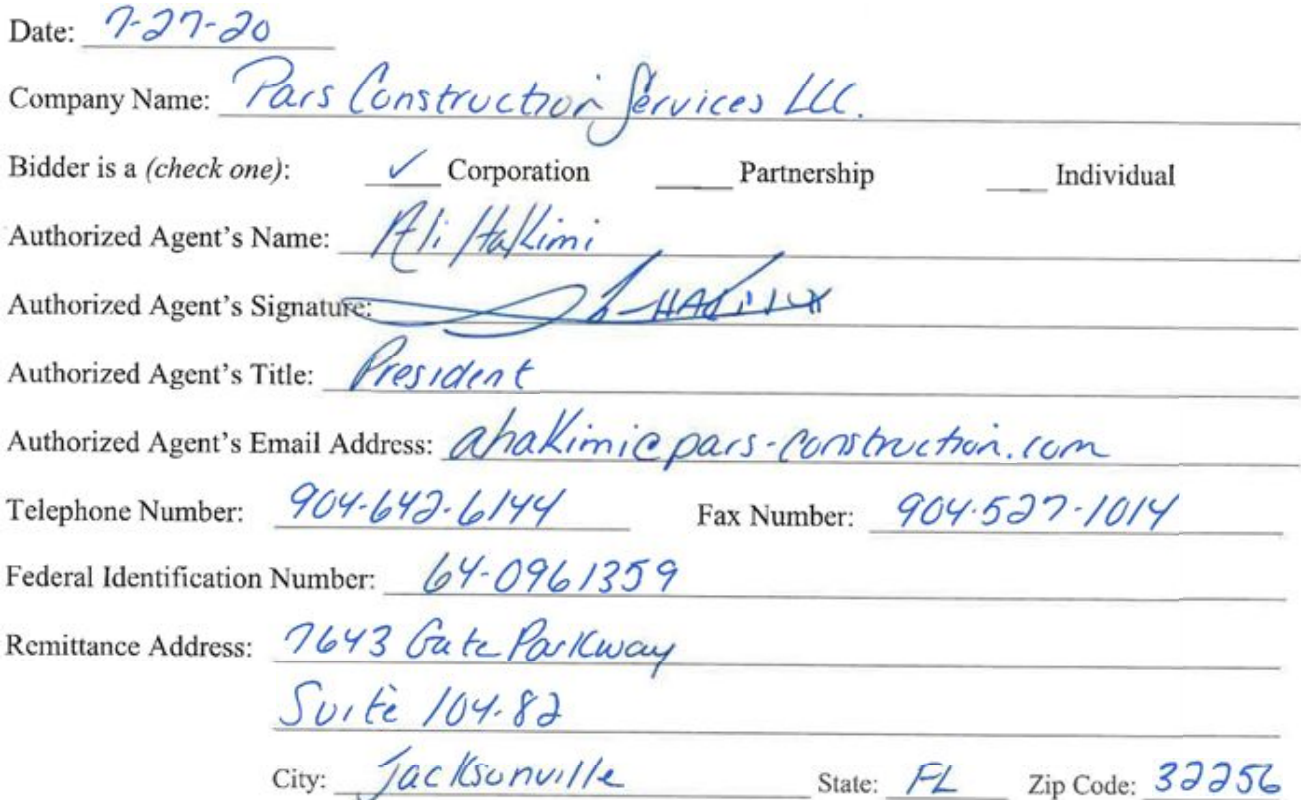 Date: 7-27-20
Company Name: Pars Construction Services LLC.
Bidder is a (check one): ✓ Corporation ___ Partnership ___ Individual
Authorized Agent's Name: Ali Hakimi
Authorized Agent's Signature:
Authorized Agent's Title: President
Authorized Agent's Email Address: ahakimi@pars-construction.com
Telephone Number: 904-642-6144 Fax Number: 904-527-1014
Federal Identification Number: 64-0961359
Remittance Address: 7643 Gate Parkway
Suite 104-82
City: Jacksonville State: FL Zip Code: 32256